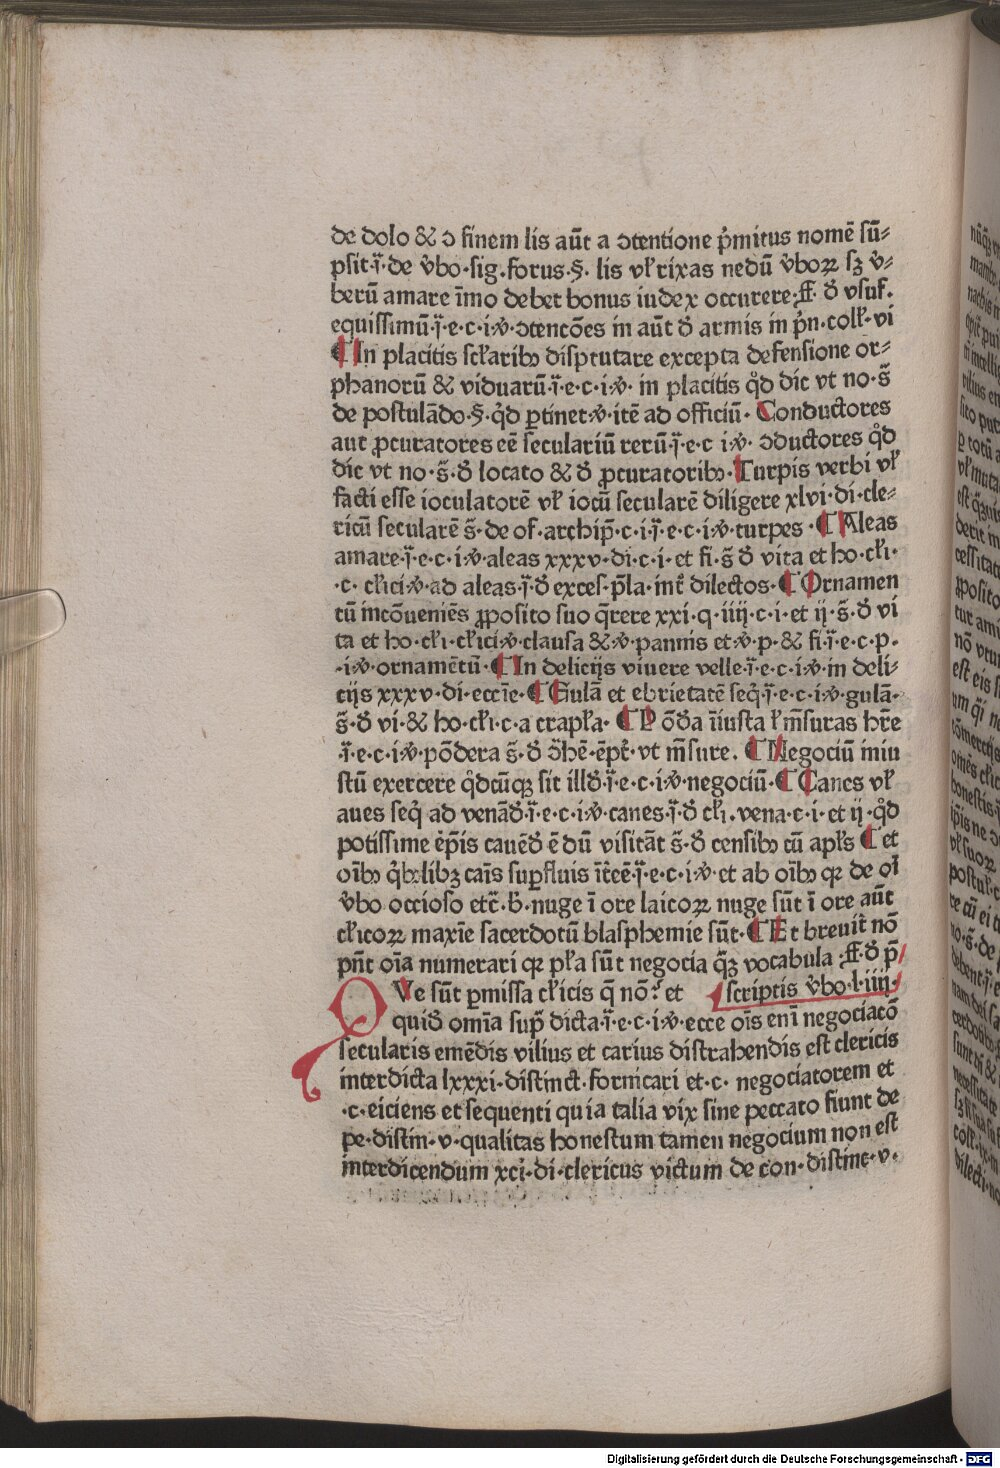 de dolo & ɔ finem lis aūt a ɔtentione p̄mitus nomē sū-
psit·i̅·de v̊bo·sig·forus·§· lis vl̵ rixas nedū v̊boꝝ sꝫ v̊-
berū amare īmo debet bonus iudex occurere·ff· d̵ vsuf·
equissimū·i̅·e·c·i·v̊·ɔtencōes in aūt d̵ armis in p̄n·coll̵·vi
¶ In placitis scl̵aribꝫ disputare excepta defensione or-
phanorū & viduarū·i̅·e·c·i·v̊· in placitis qd̵ dic vt no·s̄
de postulādo·§·qd̵ ꝑtinet·v̊·itē ad officiū· Conductores
aut ꝓcuratores eē seculariū rerū·i̅·e·c i·v̊· ɔductores qd̵
dic vt no·s̄·d̵ locato & d̵ ꝓcuratoribꝫ· Turpis verbi vl̵
facti esse ioculatorē vl̵ iocū secularē diligere xlvi·di·cle-
ricū secularē s̄·de of·archip̄·c·i·i̅·e·c·i·v̊·turpes ·¶ Aleas
amare·i̅·e·c·i·v̊·aleas xxxv·di·c·i·et fi·s̄ d̵ vita et ho·cl̵i·
·c· cl̵ici·v̊·ad aleas·i̅·d̵ exces·p̄la·int̄ dilectos·¶ Ornamen
tū incōueniēs ꝓposito suo q̄rere xxi·q·iiij·c·i·et ij·s̄·d̵ vi
ta et ho·cl̵i·cl̵ici·v̊·clausa &·v̊·pannis et·v̊·p·& fi·i̅·e·c·p·
·i·v̊·ornamētū·¶ In delicijs viuere velle·i̅·e·c·i·v̊·in deli-
cijs xxxv·di·eccīe·¶ Gulā et ebrietatē seq̄·i̅·e·c·i·v̊·gulā·
s̄·d̵ vi·& ho·cl̵i·c·a crapl̵a· ¶ P ōd̵a īiusta l̵ m̄suras hr̄e
·i̅·e·c·i·v̊·pōdera s̄·d̵ ɔ̄hē·ēpt̄·vt m̄sure. ¶ Negociū iniu
stū exercere qd̵cūqꝫ sit illd̵·i̅·e·c·i·v̊·negociū·¶ Canes vl̵
aues seq̄ ad venād̵·i̅·e·c·i·v̊·canes·i̅·d̵ cl̵i·vena·c·i·et ij·qd̵
potissime ēp̄is cauēd̵ ē dū visitāt s̄·d̵ censibꝫ cū apl̵s ¶ et
oībꝫ q̄bꝫlibꝫ caīs suꝑfluis īt̄cē·i̅·e·c·i·v̊·et ab oībꝫ qꝛ de oī
v̊bo occioso etc̄·b̄·nuge ī ore laicoꝝ nuge sūt ī ore aūt
cl̵icoꝝ maxīe sacerdotū blasphemie sūt·¶ Et breuit̄ nō
pn̄t oīa numerari qꝛ pl̵a sūt negocia q̄ꝫ vocabula·ff·d̵ p̄
Ve sūt ꝑmissa cl̵icis q̄ nō· et scriptis v̊bo·l·iiij·
quid omīa sup̄ dicta·i̅·e·c·i·v̊·ecce oīs enī negociacō
secularis emēdis vilius et carius distrahendis est clericis
interdicta lxxxi·distinct·fornicari et·c· negociatorem et
·c·eiciens et sequenti quia talia vix sine peccato fiunt de
pe·distin·v·qualitas honestum tamen negocium non est
interdicendum xci·di·clericus victum de con·distinc·v·
Digitalisierung gefördert durch die Deutsche Forschungsgemeinschaft - DFG